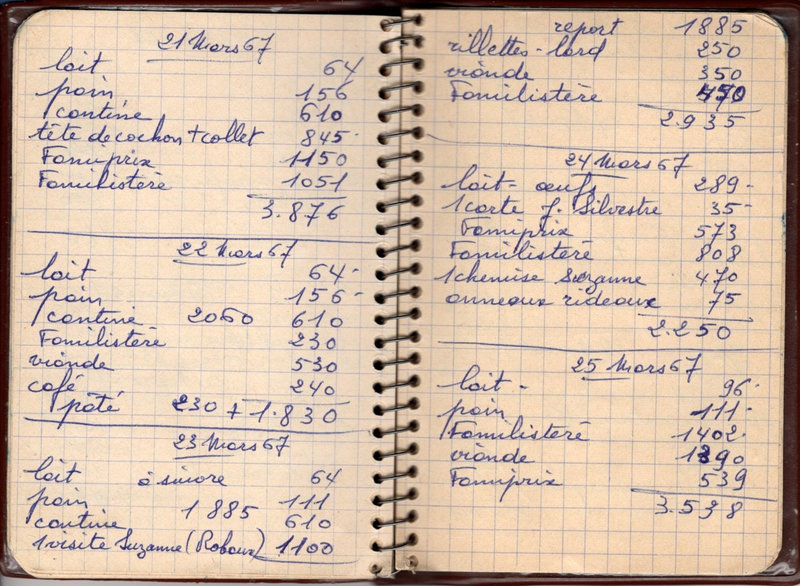 21 Mars 67
lait 64
pain 156
cantine 610
tête de cochon + collet 845
Famiprix 1150
Familistère 1051
3.876
22 Mars 67
lait 64
pain 156
cantine 2060 610
Familistère 230
viande 530
café 240
pâté 230 + 1.830
23 Mars 67
lait à suivre 64
pain 1885 111
cantine 610
1 visite Suzanne (Roboux) 1100
report 1885
rillettes - lard 250
viande 350
Familistère 450
2.935
24 Mars 67
lait - œufs 289
1 carte J. Silvestre 35
Famiprix 573
Familistère 808
1 chemise Suzanne 470
anneaux rideaux 75
2.250
25 Mars 67
lait - 96
pain 111
Familistère 1402
viande 1390
Famiprix 539
3.538